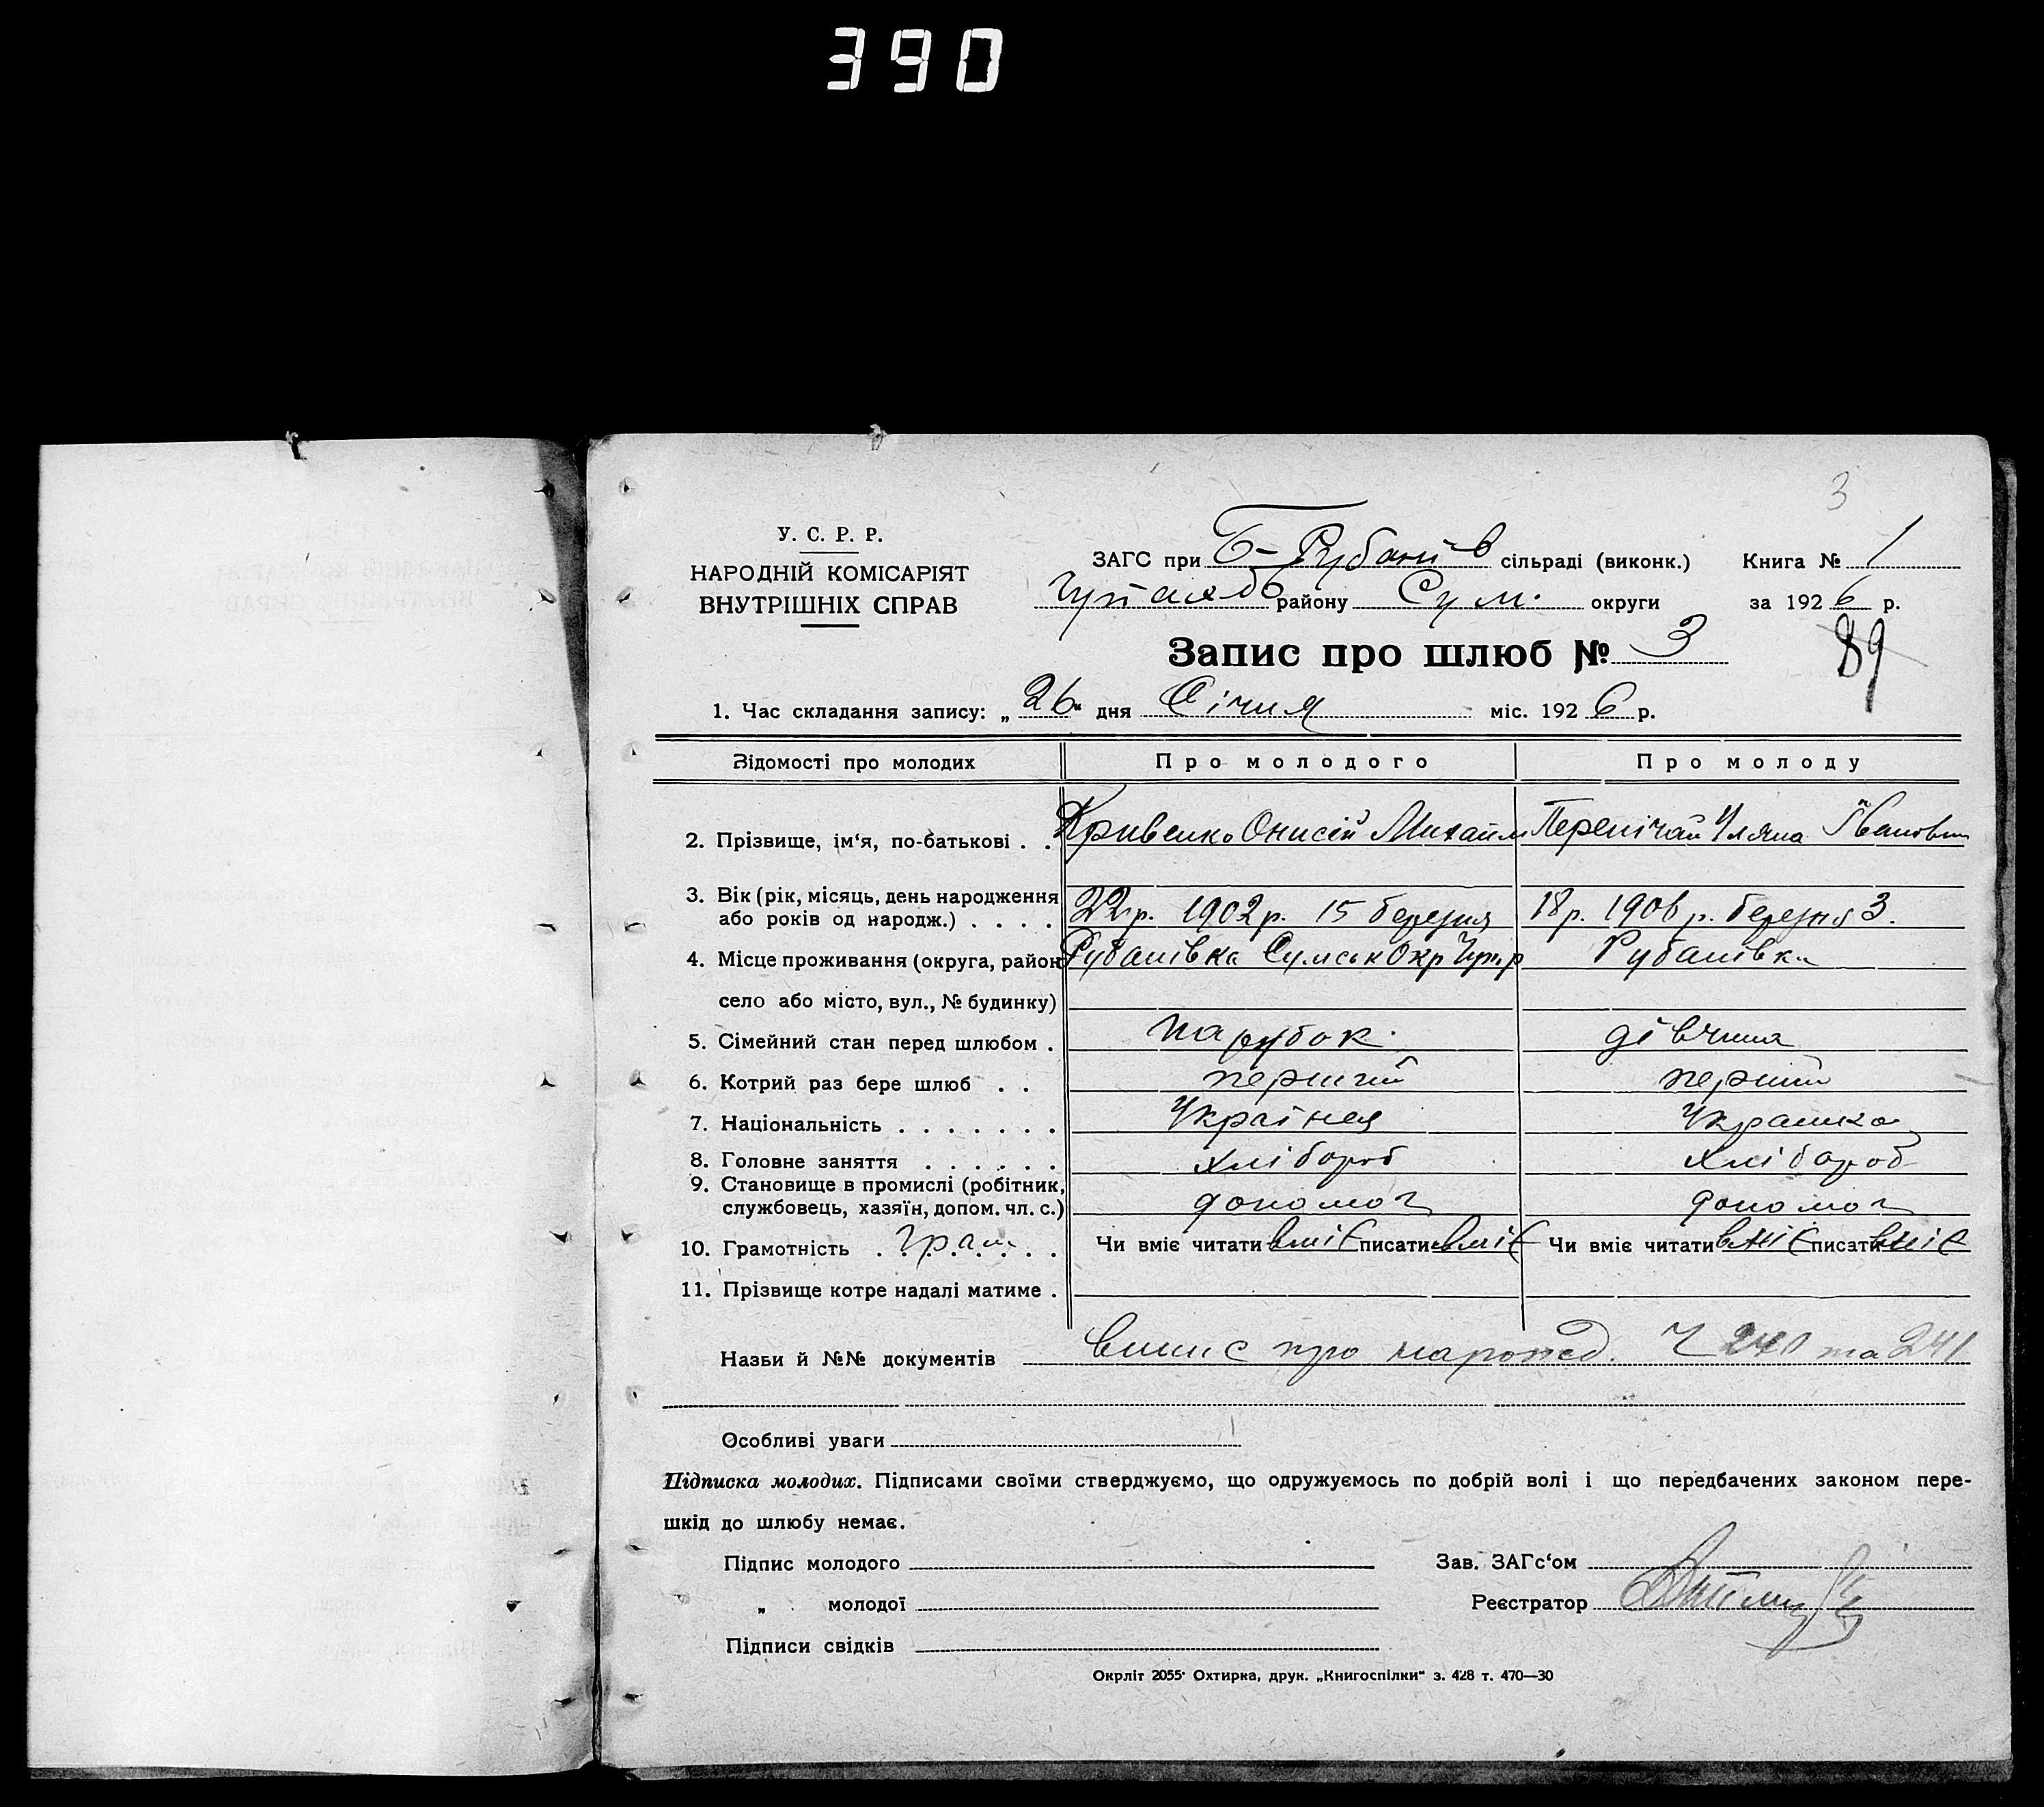 390
3
У. С. Р. Р.
НАРОДНІЙ КОМІСАРІЯТ
ВНУТРІШНІХ СПРАВ
ЗАГС при Б-Рубанів сільраді (виконк.) Книга № 1
району Сум. округи за 1926 р.
Запис про шлюб № 3
89
1. Час складання запису: „26“ дня Січня міс. 1926 р.
Відомості про молодих Про молодого Про молоду
2. Прізвище, ім‘я, по-батькові . . Кривенко Онисій Михайл Перепічай Уляна Іванов
3. Вік (рік, місяць, день народження
або років од народж.) . . . . 22 р. 1902 р. 15 березня 18 р. 1906 р. березня 3.
4. Місце проживання (округа, район Рубанівка Сумськ Окр Рубанівка
село або місто, вул., № будинку)
5. Сімейний стан перед шлюбом . парубок. дівчина
6. Котрий раз бере шлюб . . перший перший
7. Національність . . . . . . . Українец Украинка
8. Головне заняття . . . . . . хлібороб хлібороб
9. Становище в промислі (робітник,
службовець, хазяїн, допом. чл. с.) допомог допомог
10. Грамотність . грам . . Чи вміє читати вміє писати вміє Чи вміє читати вміє писати вміє
11. Прізвище котре надалі матиме .
Назви й №№ документів про народ. Ч 240 та 241
Особливі уваги
Підписка молодих. Підписами своїми стверджуємо, що одружуємось по добрій волі і що передбачених законом пере-
шкід до шлюбу немає.
Підпис молодого Зав. ЗАГс‘ом
„ молодої Реєстратор
Підписи свідків
Окрліт 2055 Охтирка, друк. „Книгоспілки“ з. 428 т. 470—30